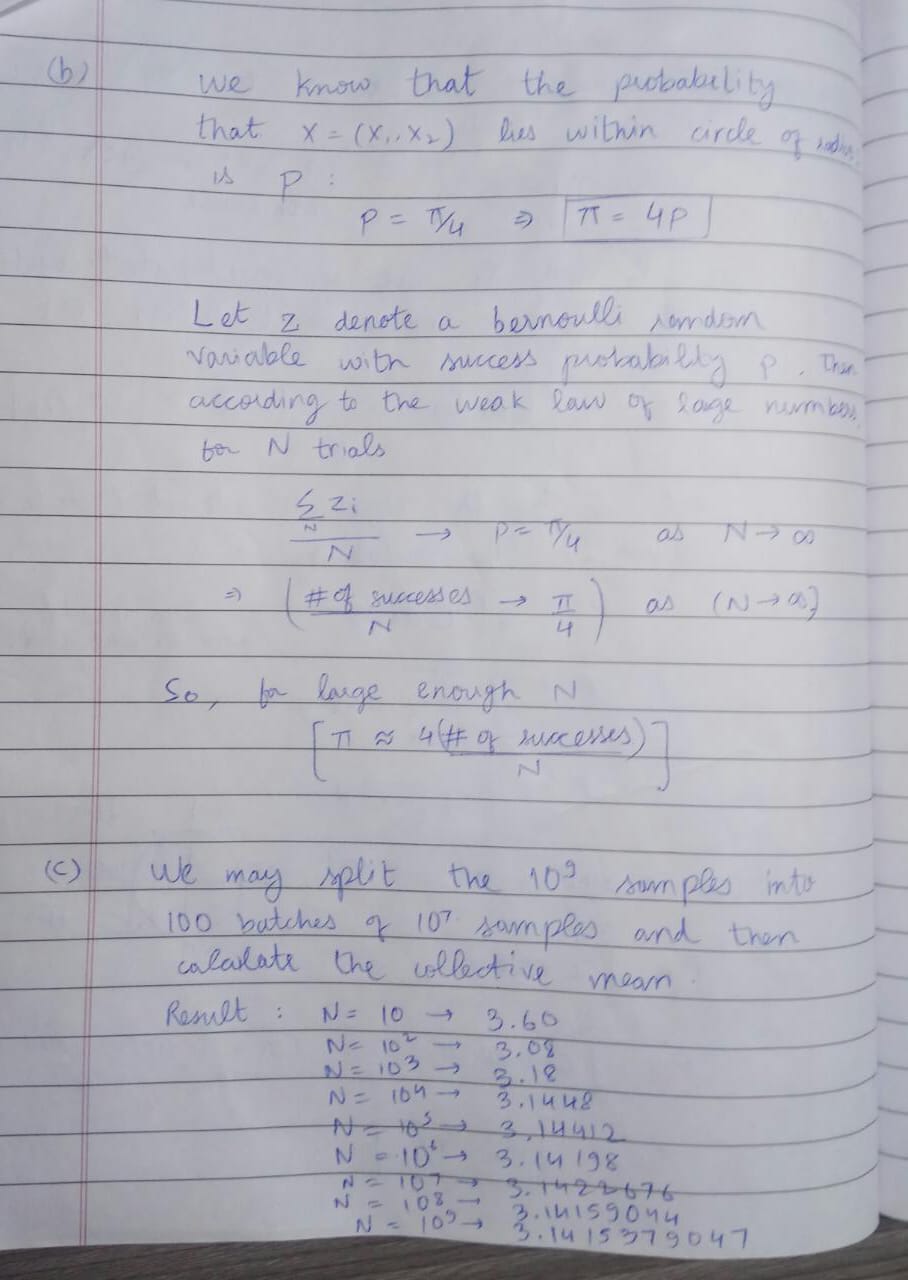 (b) We know that the probability
that X = (X₁, X₂) lies within circle of radius
is p :
P = π/4 ⇒ π = 4p
Let Z denote a bernoulli random
variable with success probability p. Then
according to the weak law of large numbers,
for N trials
Σ_N Zi / N → P = π/4 as N → ∞
⇒ (# of successes / N → π/4) as (N → ∞)
So, for large enough N
[π ≈ 4(# of successes) / N]
(c) We may split the 10⁹ samples into
100 batches of 10⁷ samples and then
calculate the collective mean.
Result : N = 10 → 3.60
N = 10² → 3.08
N = 10³ → 3.18
N = 10⁴ → 3.1448
N = 10⁵ → 3.14412
N = 10⁶ → 3.14198
N = 10⁷ → 3.1422676
N = 10⁸ → 3.14159044
N = 10⁹ → 3.1415379047